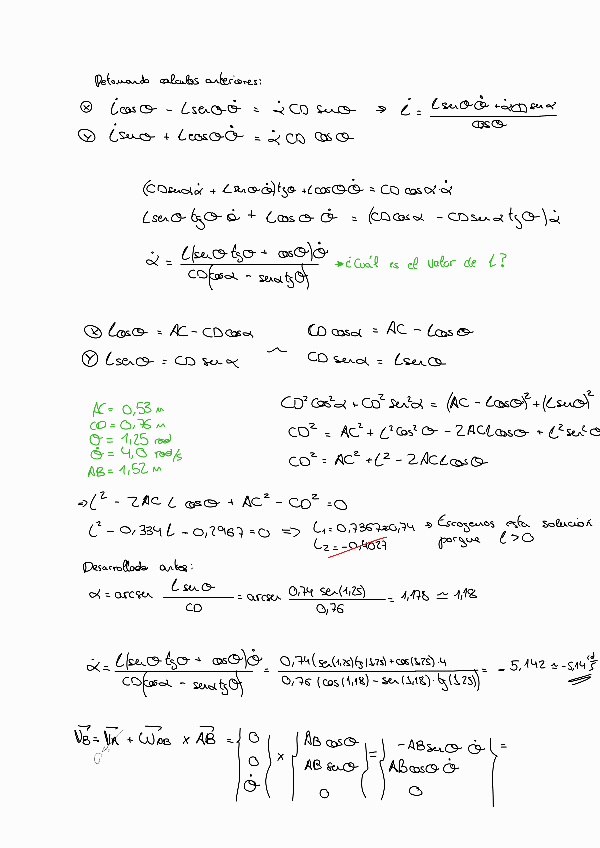 Retomando calculos anteriores:
Ⓧ L̇cosθ - Lsenθθ̇ = α̇ CD senθ → L̇ = (Lsenθθ̇ + α̇CDsenα)/cosθ
Ⓨ L̇senθ + Lcosθθ̇ = α̇ CD cosθ
(CDsenαα̇ + Lsenθθ̇)tgθ + Lcosθθ̇ = CD cosα α̇
Lsenθtgθθ̇ + Lcosθ θ̇ = (CDcosα - CDsenα tgθ)α̇
α̇ = L(senθtgθ + cosθ)θ̇ / CD(cosα - senαtgθ) → ¿Cuál es el valor de L?
Ⓧ Lcosθ = AC - CDcosα CD cosα = AC - Lcosθ
Ⓨ Lsenθ = CD senα CD senα = Lsenθ
CD²cos²α + CD²sen²α = (AC - Lcosθ)² + (Lsenθ)²
CD² = AC² + L²cos²θ - 2ACLcosθ + L²sen²θ
CD² = AC² + L² - 2ACLcosθ
AC = 0,53 m
CD = 0,76 m
θ = 1,25 rad
θ̇ = 4,0 rad/s
AB = 1,52 m
→ L² - 2AC L cosθ + AC² - CD² = 0
L² - 0,334L - 0,2967 = 0 ⇒ L₁ = 0,7367≈0,74 → Escogemos esta solucion
L₂ = -0,4027 porque L>0
Desarrollado antes:
α = arcsen (L senθ / CD) = arcsen (0,74 sen(1,25) / 0,76) = 1,178 ≃ 1,18
α̇ = L(senθ tgθ + cosθ)θ̇ / CD(cosα - senαtgθ) = 0,74(sen(1,25)tg(1,25)+cos(1,25)·4 / 0,76(cos(1,18) - sen(1,18)·tg(1,25)) = -5,142 ≃ -5,14 rd/s
V⃗B = V⃗A + ω⃗AB × A⃗B = {0 0 θ̇} × {ABcosθ ABsenθ 0} = {-ABsenθ θ̇ ABcosθ θ̇ 0} =
0